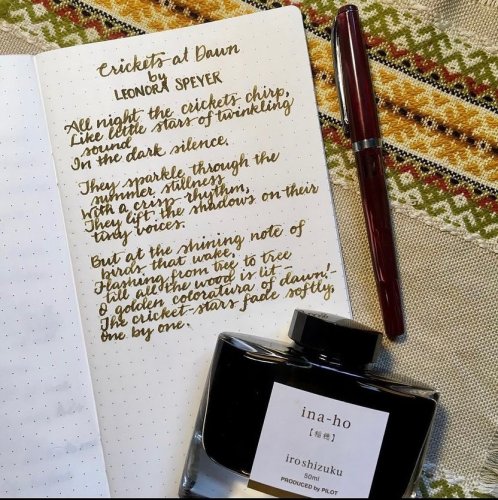 Crickets at Dawn
by
LEONORA SPEYER
All night the crickets chirp,
Like little stars of twinkling
sound
In the dark silence.
They sparkle through the
summer stillness
With a crisp rhythm,
They lift the shadows on their
tiny voices.
But at the shining note of
birds that wake,
Flashing from tree to tree
till all the wood is lit –
O golden coloratura of dawn! –
The cricket-stars fade softly,
One by one.
ina-ho
【稲穂】
iroshizuku
50ml
PRODUCED by PILOT